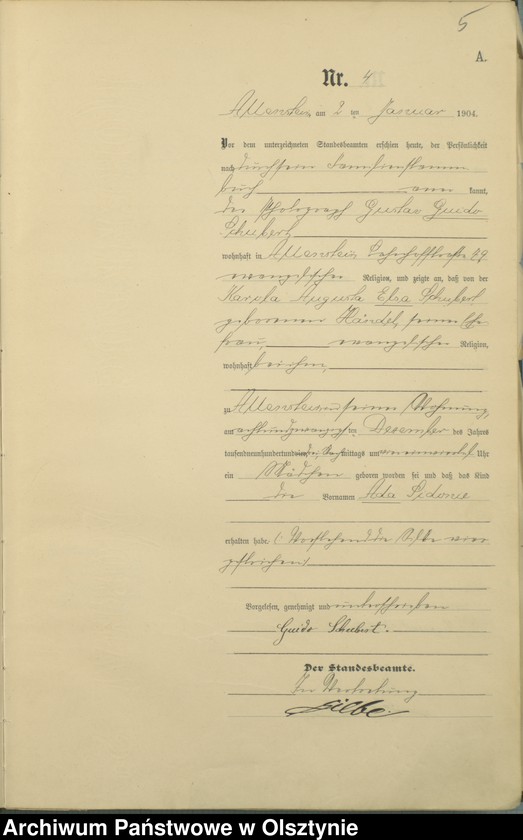 5
A.
Nr. 4
Allenstein, am 2 ten Januar 1904.
Vor dem unterzeichneten Standesbeamten erschien heute, der Persönlichkeit
nach durch sein Familienstamm
buch kannt,
der Photograph Gustav Guido
Schubert
wohnhaft in Allenstein Bahnhofstraße 29
evangelischer Religion, und zeigte an, daß von der
Karola Augusta Elsa Schubert
geborenen Händel, seiner Ehe
frau, evangelischer Religion,
wohnhaft bei ihm,
zu Allenstein in seiner Wohnung,
am achtundzwanzigsten Dezember des Jahres
tausendneunhundertunddrei mittags um Uhr
ein Mädchen geboren worden sei und daß das Kind
die Vornamen Ada Sidonie
erhalten habe. (Vorstehend die Silbe
gestrichen)
Vorgelesen, genehmigt und unterschrieben
Guido Schubert.
Der Standesbeamte.
In Vertretung
Archiwum Państwowe w Olsztynie